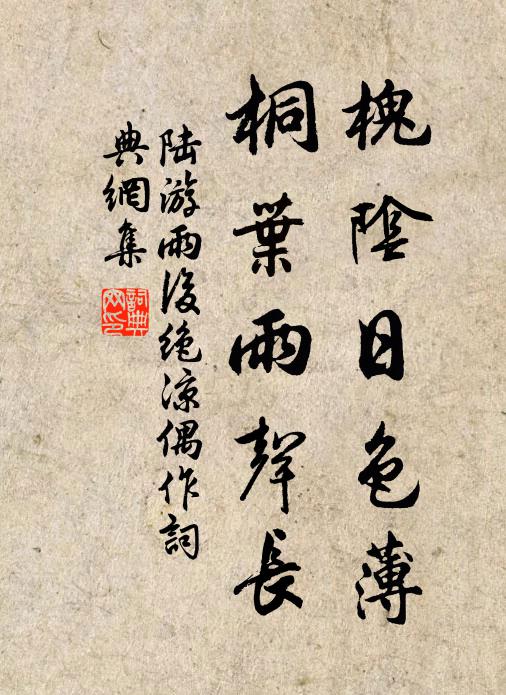 槐陰日色薄
桐葉雨聲長
陸游雨後绝凉偶作詞
典網集
詞典
网印